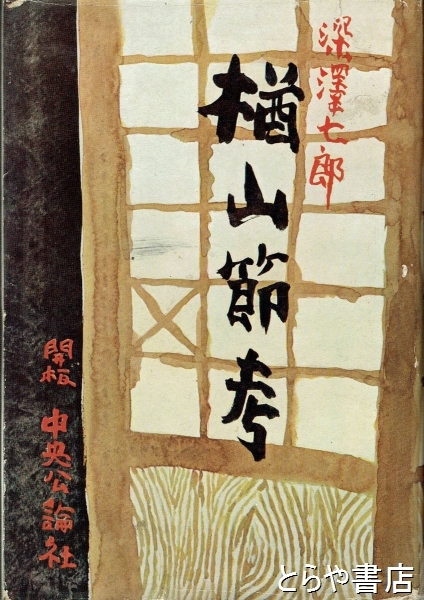 深澤七郎
楢山節考
開板 中央公論社
とらや書店